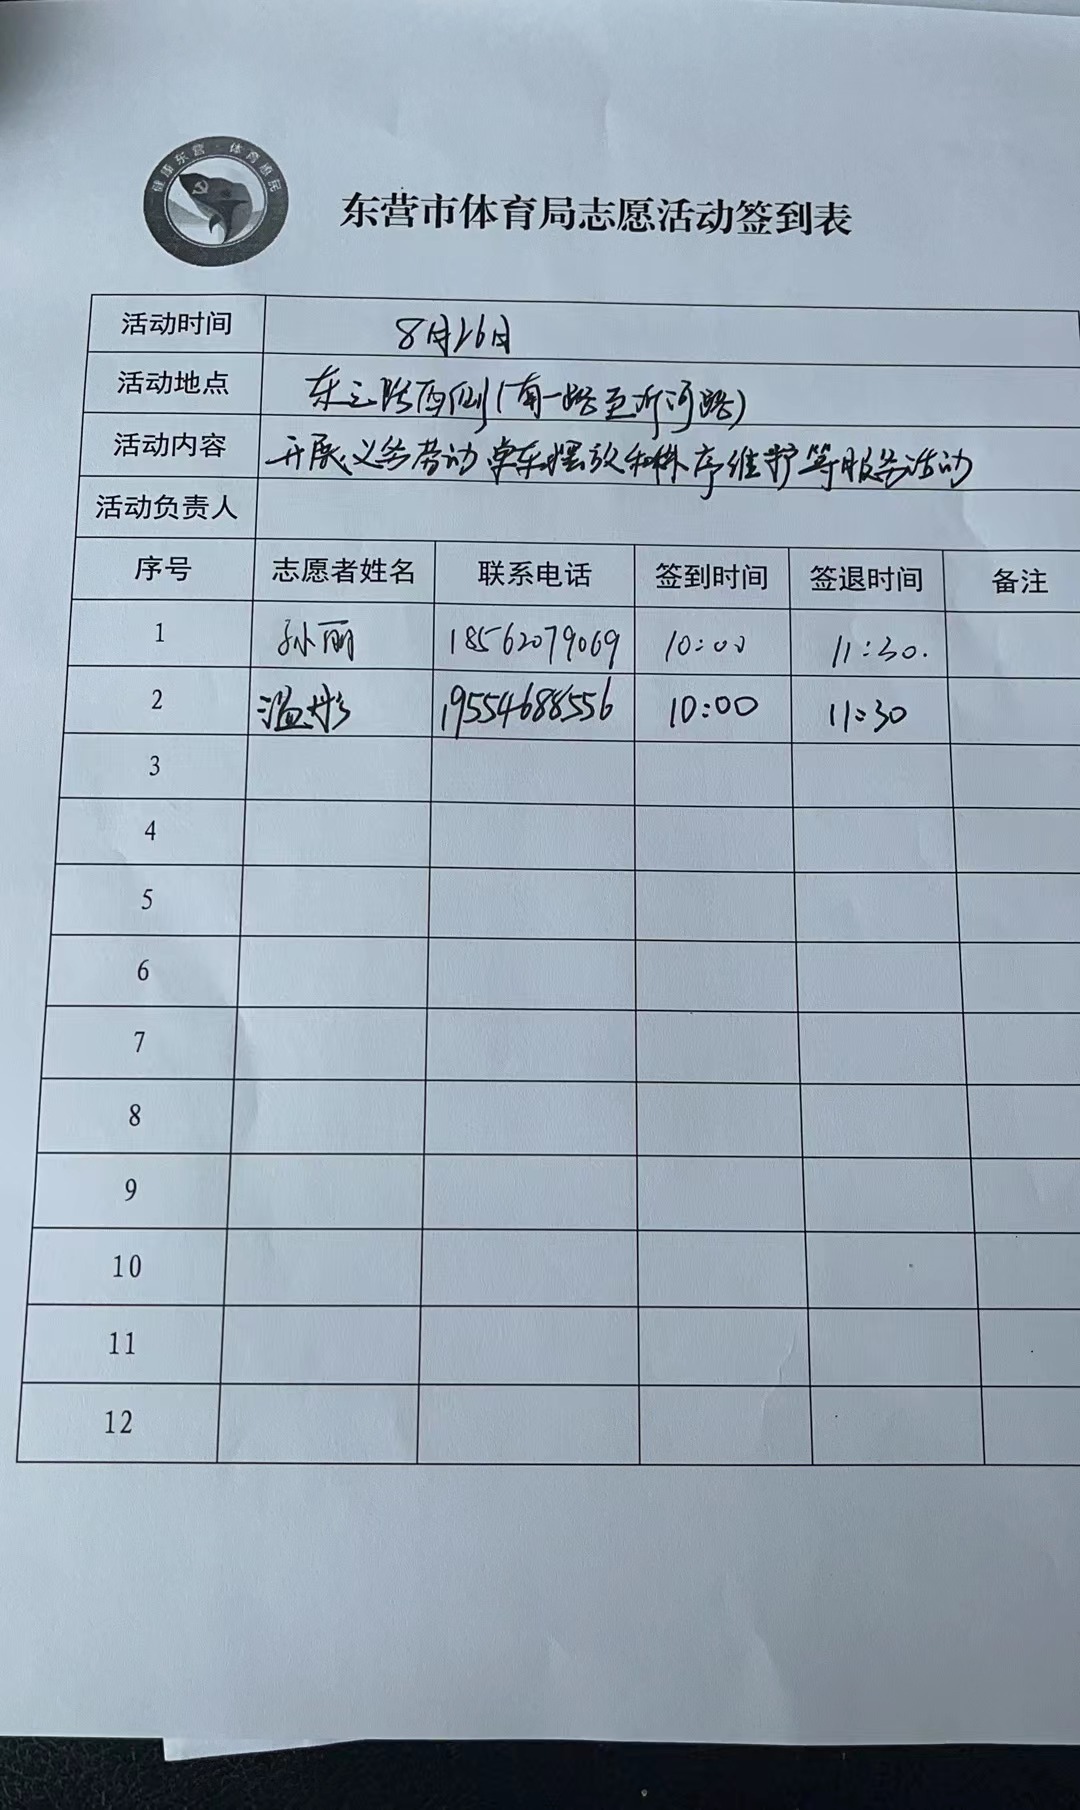 健康东营·体育惠民
东营市体育局志愿活动签到表
活动时间 8月26日
活动地点 东三路西侧(南一路至沂河路)
活动内容 开展义务劳动单车摆放和秩序维护等服务活动
活动负责人
序号 志愿者姓名 联系电话 签到时间 签退时间 备注
1 孙丽 18562079069 10:00 11:30.
2 温彤 19554688556 10:00 11:30
3
4
5
6
7
8
9
10
11
12